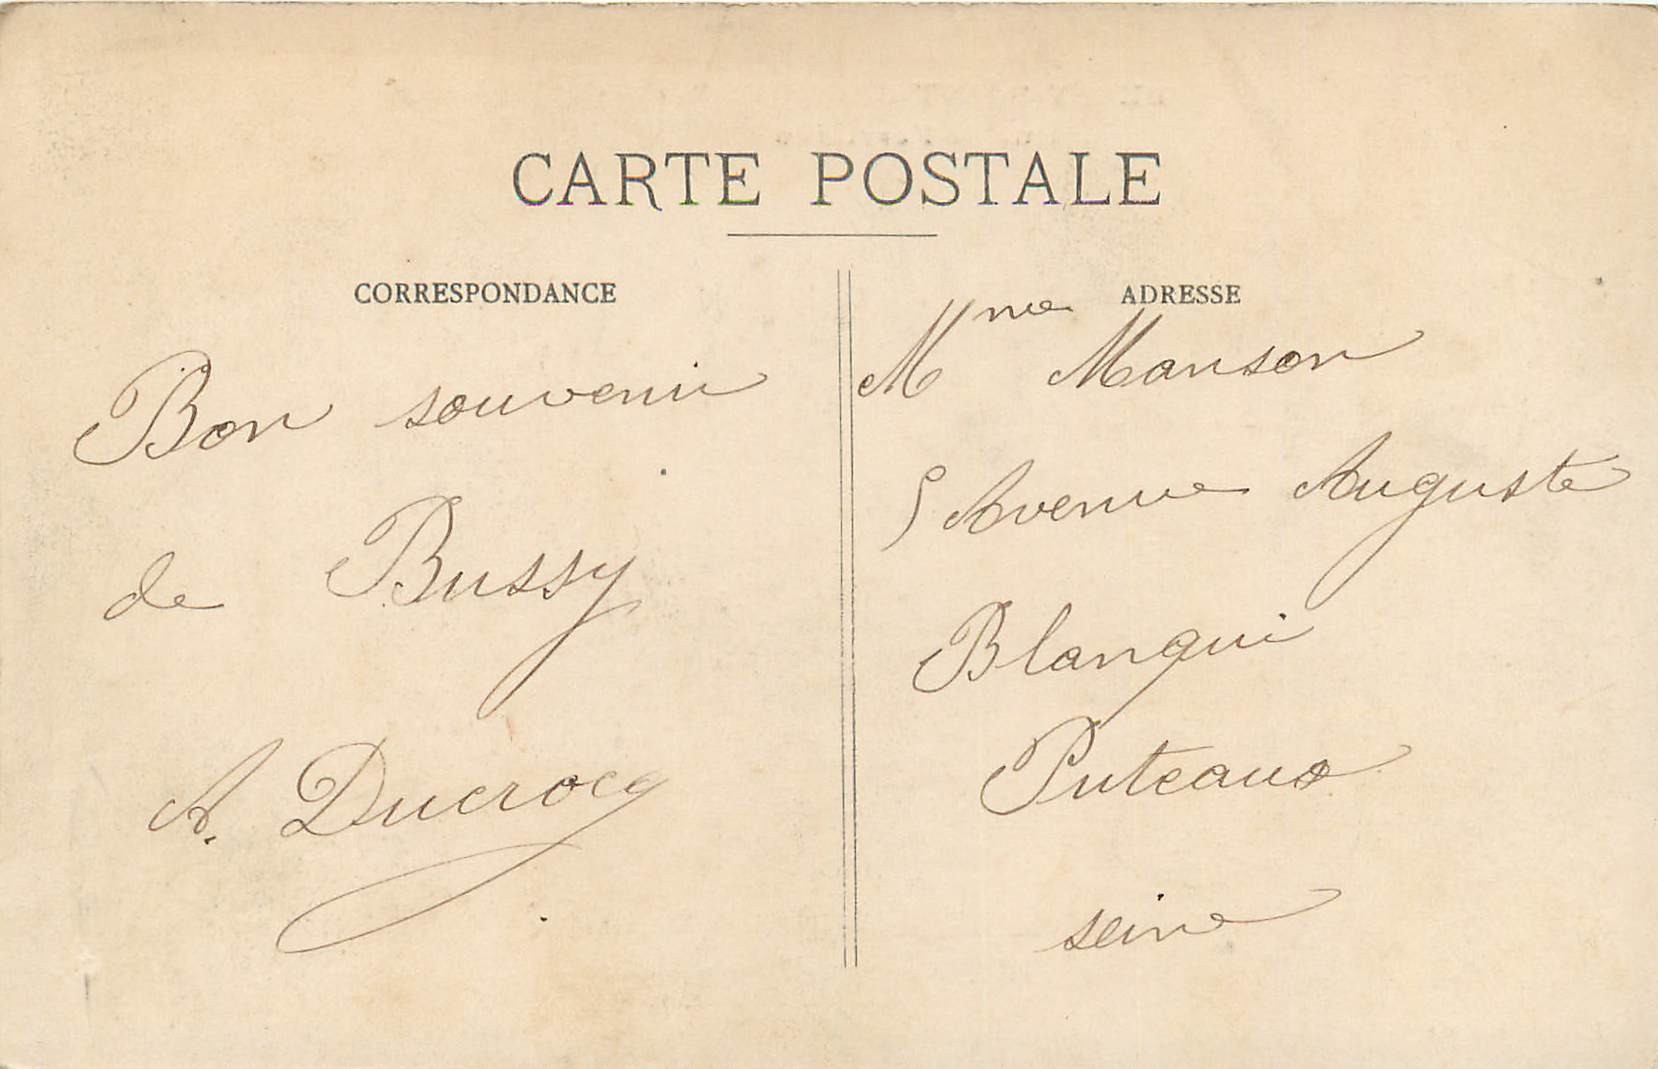 CARTE POSTALE
CORRESPONDANCE
Bon souvenir
de Bussy
A. Ducrocq
ADRESSE
Mme Manson
5 Avenue Auguste
Blanqui
Puteaux
seine